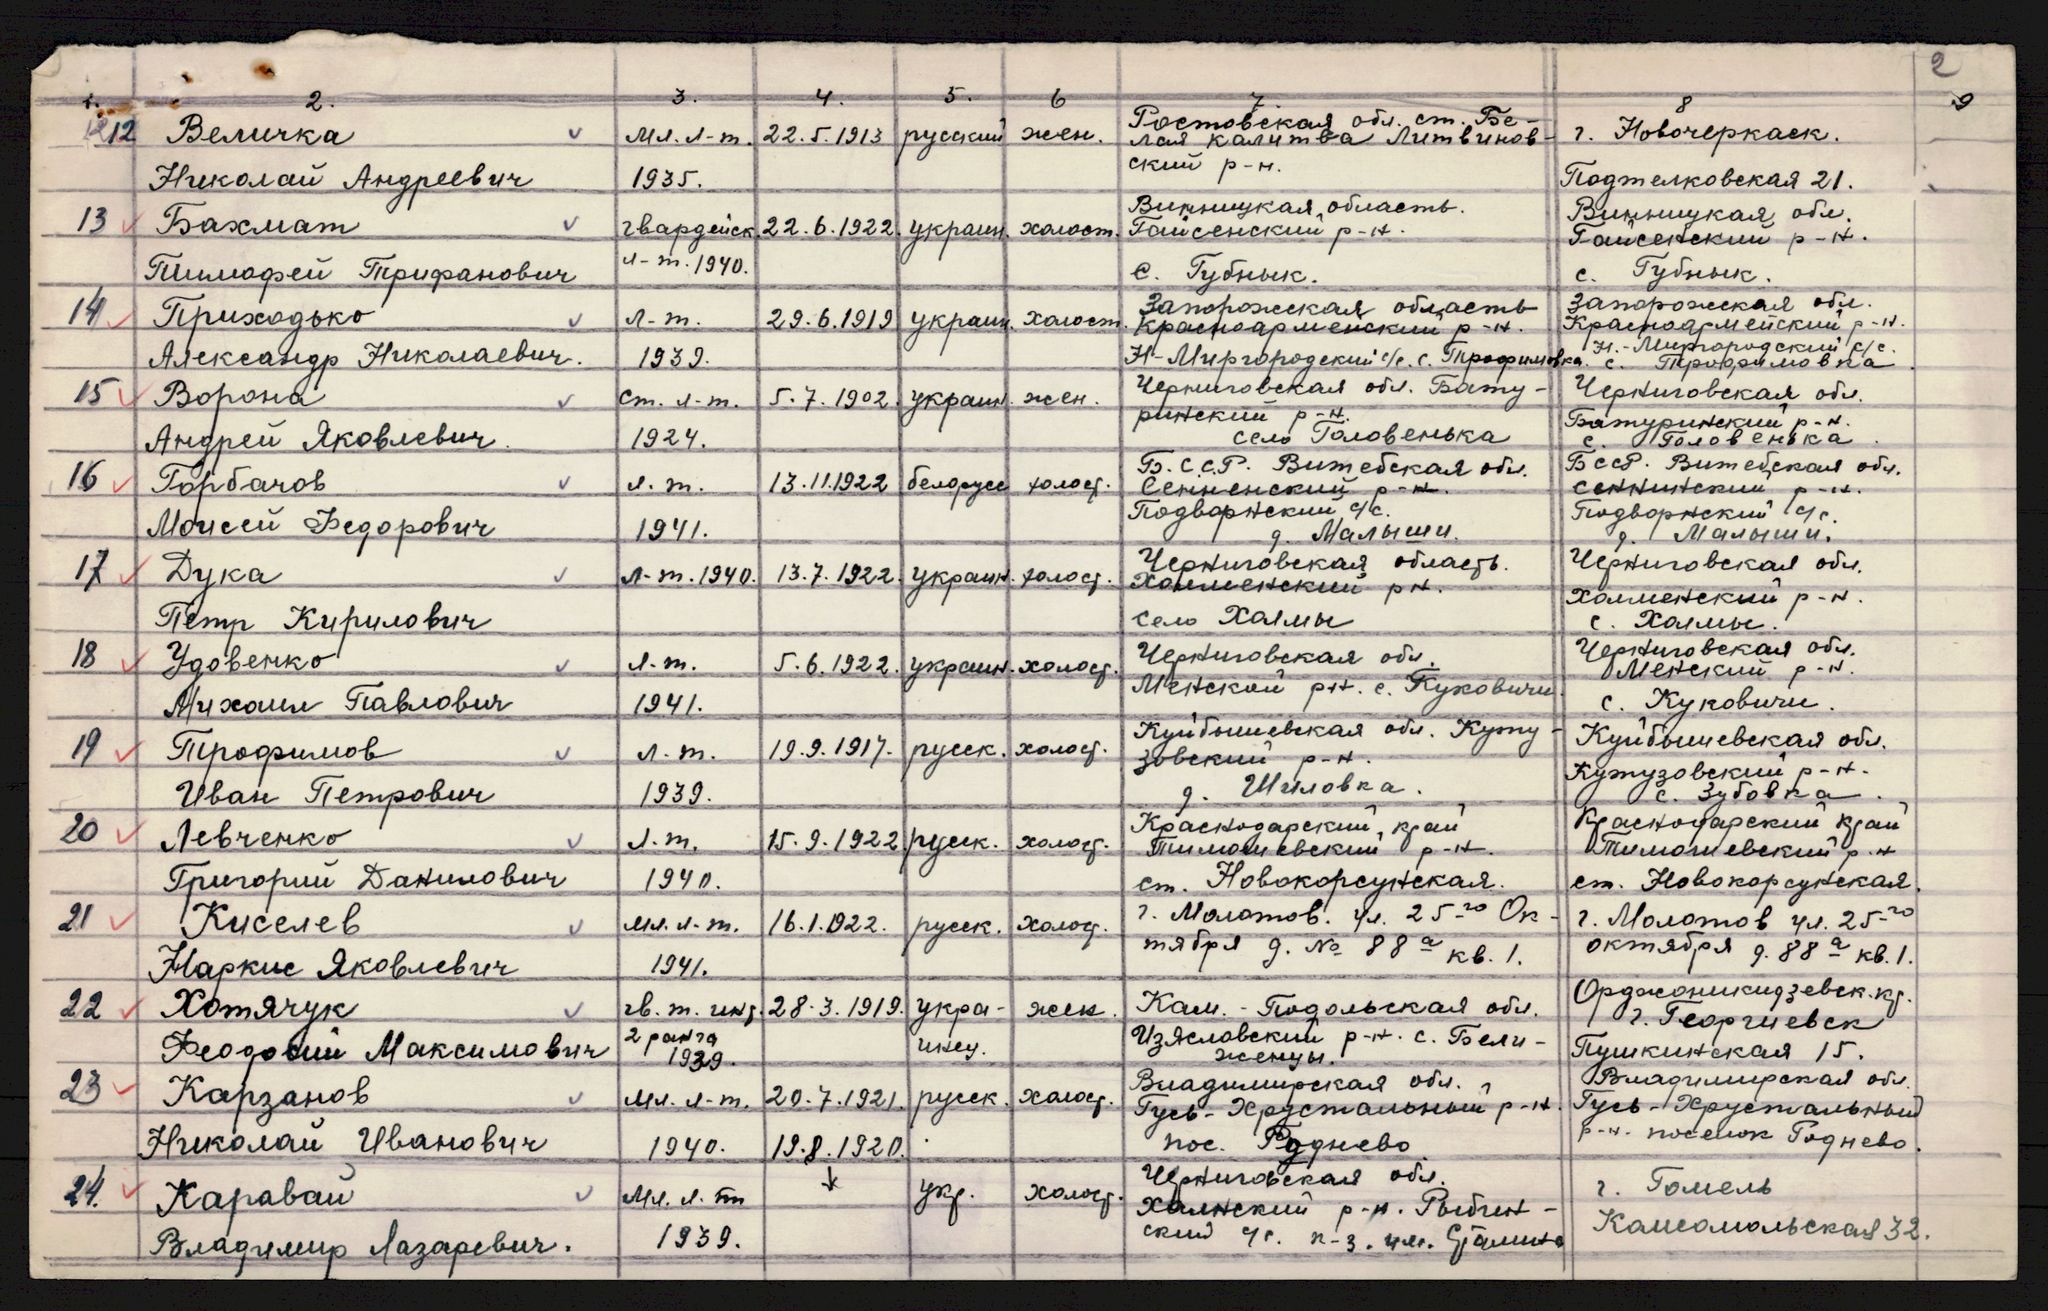 2
1. 2. 3. 4. 5. 6 7 8 9
12 Величка мл. л-т. 22.5.1913 русский жен. Ростовская обл. ст. Бе- г. Новочеркаск.
лая калитва Литвинов-
ский р-н.
Николай Андреевич 1935. Подтелковская 21.
13 Бахмат гвардейск. 22.6.1922. украин. холост. Винницкая область. Винницкая обл.
Гайсенский р-н. Гайсенский р-н.
Тимофей Трифанович л-т. 1940. с. Губнык. с. Губнык.
14 Приходько л-т. 29.6.1919 украин. холост. Запорожская область Запорожская обл.
Красноарменский р-н. Красноармейский р-н.
Александр Николаевич. 1939. Н-Миргородский с/с. с. Трофимовка. Н.-Миргородский с/с.
с. Трофимовка.
15 Ворона ст. л-т. 5.7.1902. украин. жен. Черниговская обл. Бату- Черниговская обл.
ринский р-н. Батуринский р-н.
Андрей Яковлевич. 1924. село Головенька с. Головенька.
16 Горбачов л.т. 13.11.1922 белорусс холост. Б.С.С.Р. Витебская обл. БССР. Витебская обл.
Сенненский р-н. сеннинский р-н.
Моисей Федорович 1941. Подворнский с/с. Подворнский с/с.
д. Малыши. д. Малыши.
17 Дука л-т. 1940. 13.7.1922. украин. холост. Черниговская область. Черниговская обл.
Холменский рн. холменский р-н.
Петр Кирилович село Холмы с. Холмы.
18 Удовенко л-т. 5.6.1922. украин. холост. Черниговская обл. Черниговская обл.
Менской рн. с. Куковичи. Менский р-н.
Михаил Павлович 1941. с. Куковичи.
19 Трофимов л-т. 19.9.1917. русск. холост. Куйбышевская обл. Куту- Куйбышевская обл.
зовский р-н. Кутузовский р-н.
Иван Петрович 1939. д. Шиловка. с. Зубовка.
20 Левченко л.т. 15.9.1922 русск. холост. Краснодарский край Краснодарский край
Тимошевский р-н. Тимошевский р-н
Григорий Данилович 1940. ст. Новокорсунская. ст. Новокорсунская.
21 Киселев мл. л-т. 16.1.1922. русск. холост. г. Молотов. ул. 25-го Ок- г. Молотов ул. 25-го
тября д. № 88а кв. 1. октября д. 88а кв. 1.
Наркис Яковлевич 1941.
22 Хотячук гв. т. инт. 28.3.1919. укра- жен. Кам.-Подольская обл. Орджоникидзевск. кр.
г. Георгиевск
Феодосий Максимович 2 ранга инец. Изяславский р-н. с. Бели- Пушкинская 15.
1939. женцы.
23 Карзанов мл. л-т. 20.7.1921. русск. холост. Владимирская обл. Владимирская обл.
Гусь-Хрустальный р-н. Гусь-Хрустальный
Николай Иванович 1940. 19.8.1920. пос. Роднево р-н. поселок Роднево.
24. Каравай мл. л-т укр. холост. Черниговская обл. г. Гомель
Холмский р-н. Рыбин- Комсомольская 32.
Владимир Лазаревич. 1939. ский с/с. к-з. им. Сталина